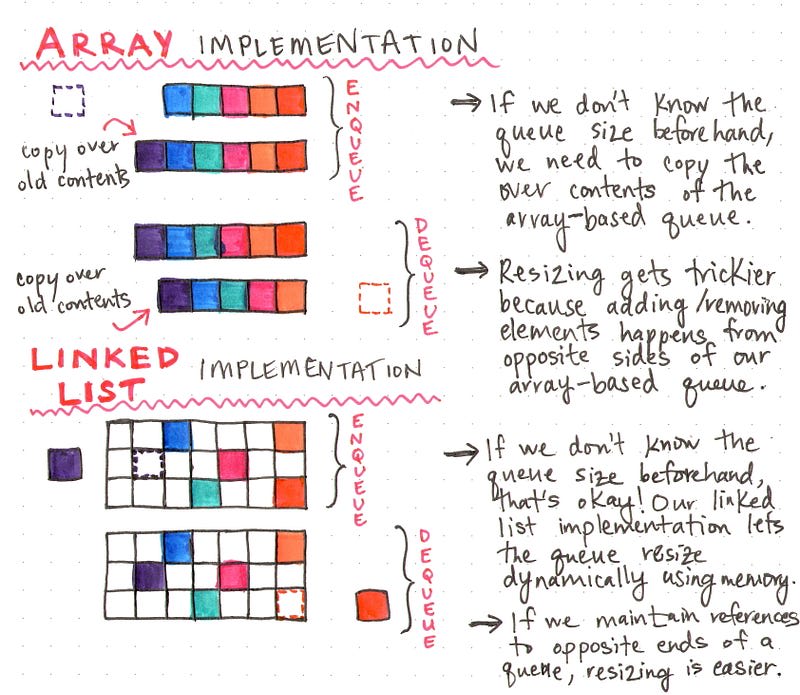 ARRAY IMPLEMENTATION
ENQUEUE
copy over
old contents
DEQUEUE
copy over
old contents
⇒ If we don't know the
queue size beforehand,
we need to copy the
over contents of the
array-based queue.
→ Resizing gets trickier
because adding/removing
elements happens from
opposite sides of our
array-based queue.
LINKED
LIST IMPLEMENTATION
ENQUEUE
DEQUEUE
→ If we don't know the
queue size beforehand,
that's okay! Our linked
list implementation lets
the queue resize
dynamically using memory.
→ If we maintain references
to opposite ends of a
queue, resizing is easier.